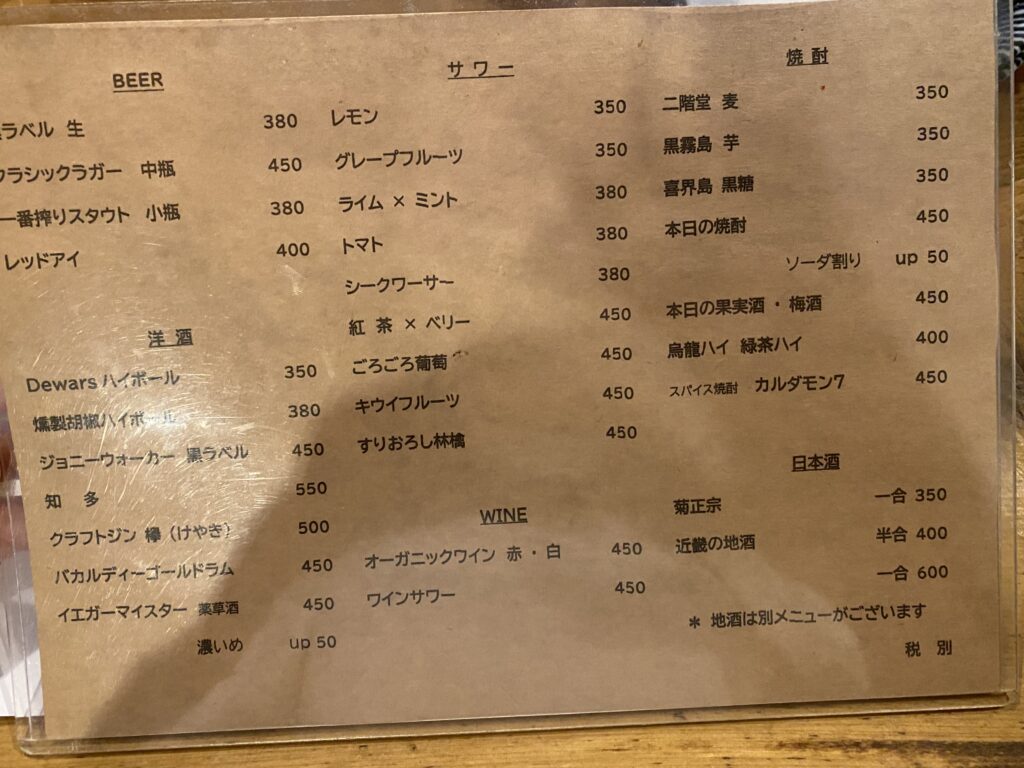 BEER
ラベル 生 380
クラシックラガー 中瓶 450
一番搾りスタウト 小瓶 380
レッドアイ 400
洋 酒
Dewars ハイボール 350
燻製胡椒ハイボール 380
ジョニーウォーカー 黒ラベル 450
知 多 550
クラフトジン 欅（けやき） 500
バカルディーゴールドラム 450
イエガーマイスター 薬草酒 450
濃いめ up 50
サワー
レモン 350
グレープフルーツ 350
ライム × ミント 380
トマト 380
シークワーサー 380
紅 茶 × ベリー 450
ごろごろ葡萄 450
キウイフルーツ 450
すりおろし林檎 450
WINE
オーガニックワイン 赤・白 450
ワインサワー 450
焼 酎
二階堂 麦 350
黒霧島 芋 350
喜界島 黒糖 350
本日の焼酎 450
ソーダ割り up 50
本日の果実酒・梅酒 450
烏龍ハイ 緑茶ハイ 400
スパイス焼酎 カルダモン7 450
日本酒
菊正宗 一合 350
近畿の地酒 半合 400
一合 600
＊ 地酒は別メニューがございます
税 別